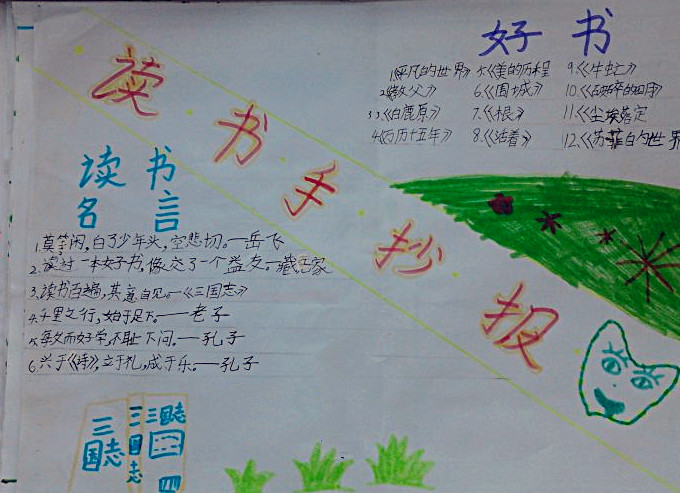 读书手抄报
好书
1.《平凡的世界》 5.《美的历程 9.《牛虻》
2.《教父》 6.《围城》 10.《破碎的四月》
3.《白鹿原》 7.《根》 11.《尘埃落定
4.《万历十五年》 8.《活着》 12.《苏菲的世界
读书
名言
1.莫等闲,白了少年头,空悲切。—岳飞
2.读过一本好书,像交了一个益友。—臧克家
3.读书百遍,其意自见。—《三国志》
4.千里之行,始于足下。——老子
5.敏而好学,不耻下问。—孔子
6.兴于《诗》,立于礼,成于乐。——孔子
三国志
三国志
三国志
四